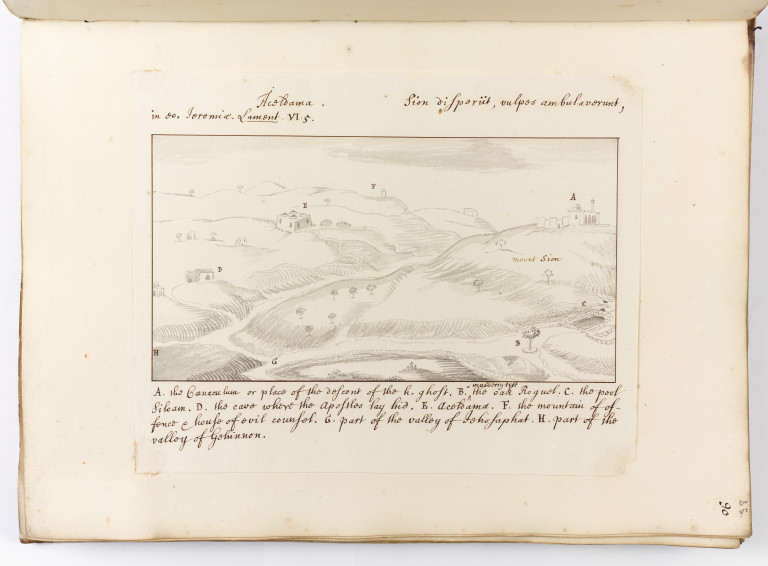 Aceldama. Sion disperiit, vulpes ambulaverunt,
in eo. Jeremiæ. Lament. VI. 5.
F
E
A
mount Sion
D
C
B
H
G
mulberry tree
A. the Cœnaculum or place of the descent of the h. ghost. B. the oak Roguel. C. the pool
Siloam. D. the cave where the Apostles lay hid. E. Aceldama. F. the mountain of of-
fence & house of evil counsel. G. part of the valley of Jehosaphat. H. part of the
valley of Gehinnon.
90